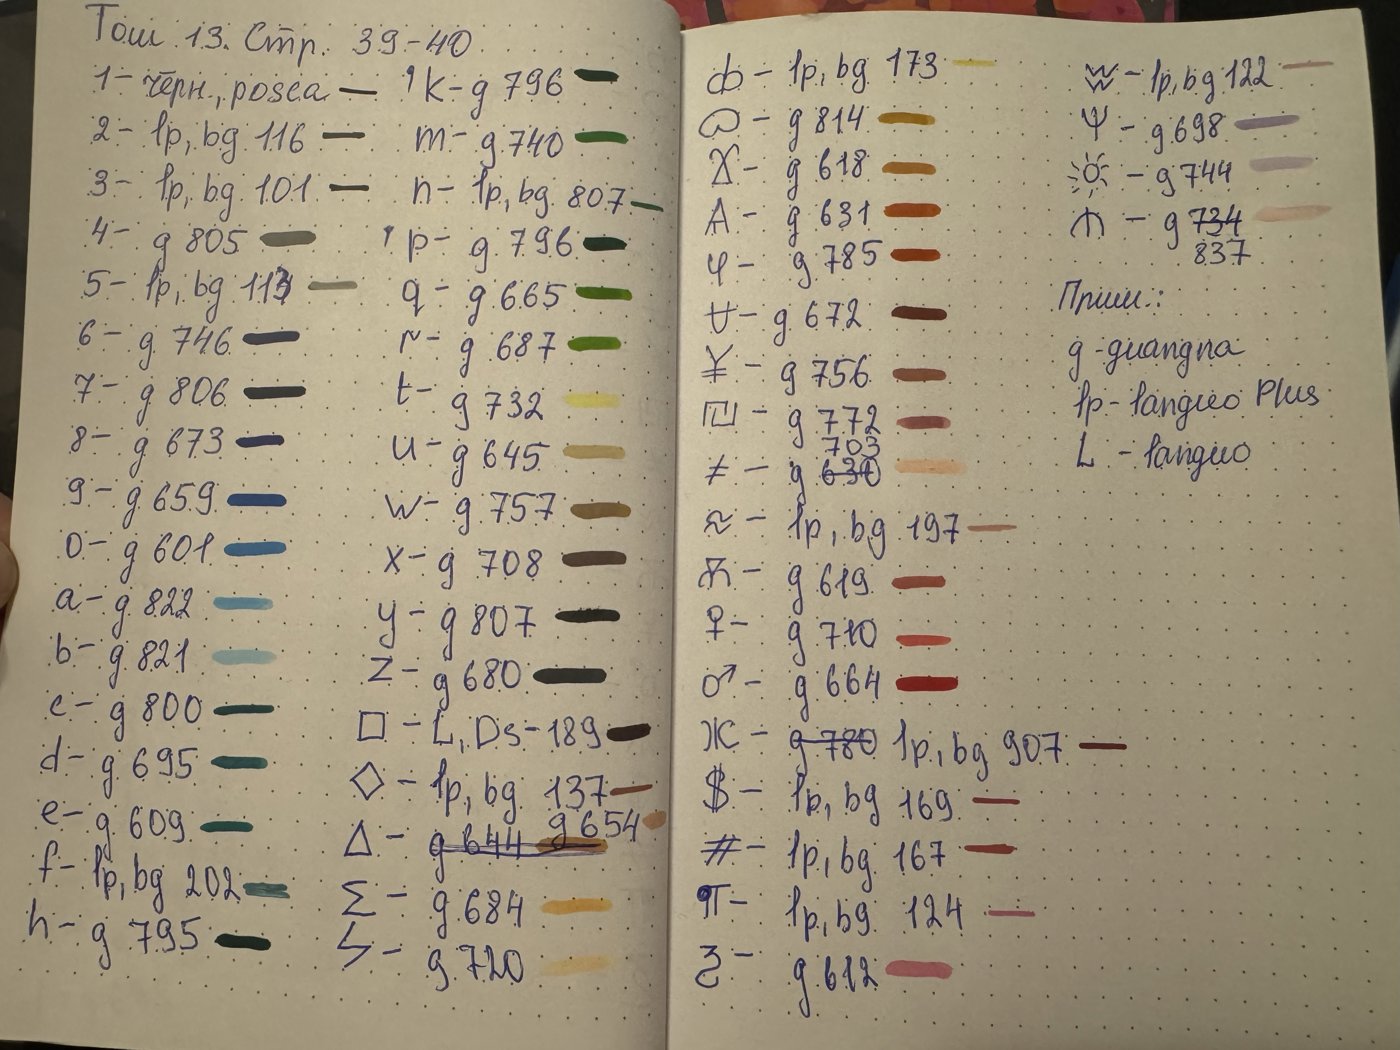 Том 13. Стр. 39-40
1- чёрн., posca
2- lp, bg 116
3- lp, bg 101
4- g 805
5- lp, bg 113
6- g 746
7- g 806
8- g 673
9- g 659
0- g 601
a- g 822
b- g 821
c- g 800
d- g 695
e- g 609
f- lp, bg 202
h- g 795
k- g 796
m- g 740
n- lp, bg 807
p- g 796
q- g 665
r- g 687
t- g 732
u- g 645
w- g 757
x- g 708
y- g 807
z- g 680
□ - L, Ds-189
◇ - lp, bg 137
△ - g 644 g 654
Σ - g 684
ϟ - g 720
ф - lp, bg 173
g 814
g 618
A - g 631
φ - g 785
g 672
¥ - g 756
g 772
703
≠ - g 630
≈ - lp, bg 197
g 619
♀ - g 710
♂ - g 664
Ж - g 780 lp, bg 907
$ - lp, bg 169
# - lp, bg 167
π - lp, bg 124
g 612
lp, bg 122
Ψ - g 698
☼ - g 744
m - g 734
837
Прим.:
g - guangna
lp - languo Plus
L - languo